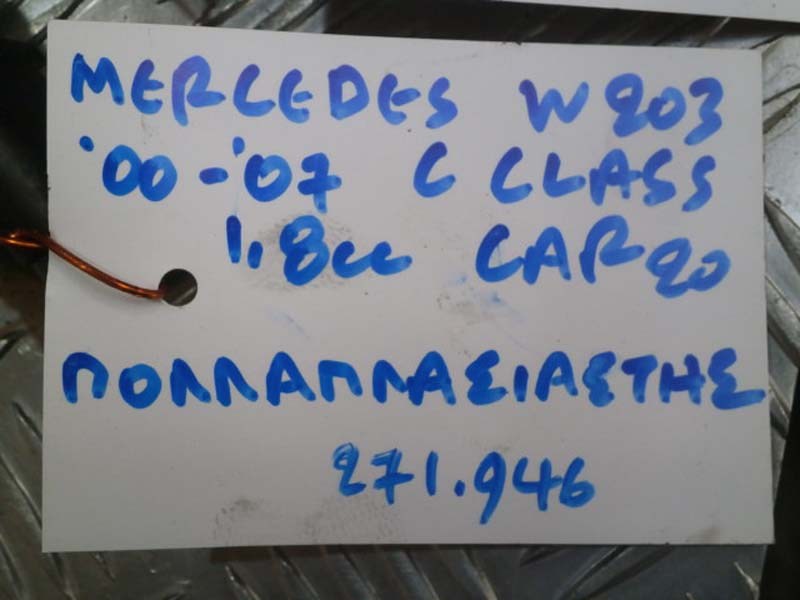 MERCEDES W203
'00-'07 C CLASS
1,8cc CAR 20
ΠΟΛΛΑΠΛΑΣΙΑΣΤΗΣ
271.946